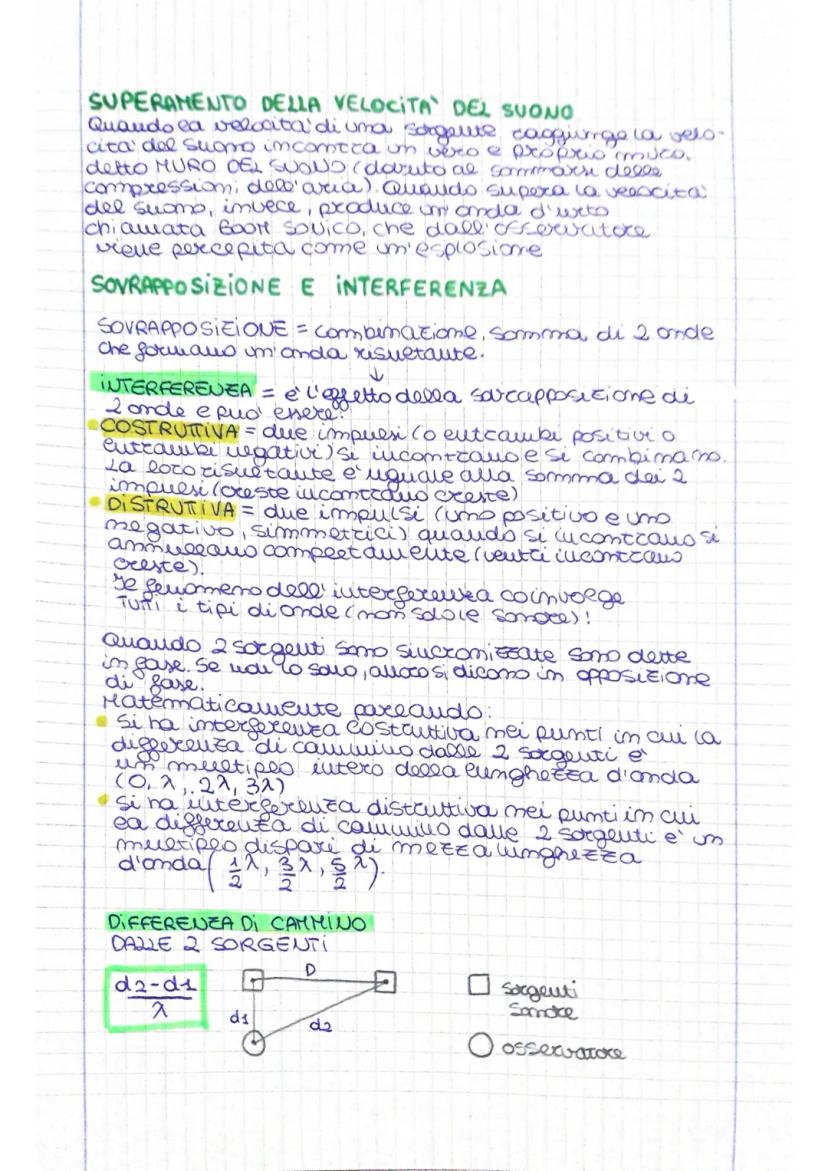 SUPERAMENTO DELLA VELOCITA' DEL SUONO
Quando la velocità di una sorgente raggiunge la velo-
cità del suono incontra un vero e proprio muro,
detto MURO DEL SUONO (dovuto al sommarsi delle
compressioni dell'aria). Quando supera la velocità
del suono, invece, produce un'onda d'urto
chiamata BOOM SONICO, che dall'osservatore
viene percepita come un'esplosione
SOVRAPPOSIZIONE E INTERFERENZA
SOVRAPPOSIZIONE = combinazione, somma di 2 onde
che formano un'onda risultante.
↓
INTERFERENZA = è l'effetto della sovrapposizione di
2 onde e può essere:
• COSTRUTTIVA = due impulsi (o entrambi positivi o
entrambi negativi) si incontrano e si combinano.
La loro risultante è uguale alla somma dei 2
impulsi (creste incontrano creste)
• DISTRUTIVA = due impulsi (uno positivo e uno
negativo, simmetrici) quando si incontrano si
annullano completamente (ventri incontrano
creste).
Il fenomeno dell'interferenza coinvolge
TUTTI i tipi di onde (non solo le sonore)!
Quando 2 sorgenti sono sincronizzate sono dette
in fase. Se non lo sono, allora si dicono in opposizione
di fase.
Matematicamente parlando:
• si ha interferenza costruttiva nei punti in cui la
differenza di cammino dalle 2 sorgenti è
un multiplo intero della lunghezza d'onda
(0, λ, 2λ, 3λ)
• si ha interferenza distruttiva nei punti in cui
la differenza di cammino dalle 2 sorgenti è un
multiplo dispari di mezza lunghezza
d'onda (1/2 λ, 3/2 λ, 5/2 λ).
DIFFERENZA DI CAMMINO
DALLE 2 SORGENTI
D
d2-d1
λ
d1
d2
sorgenti
sonore
osservatore